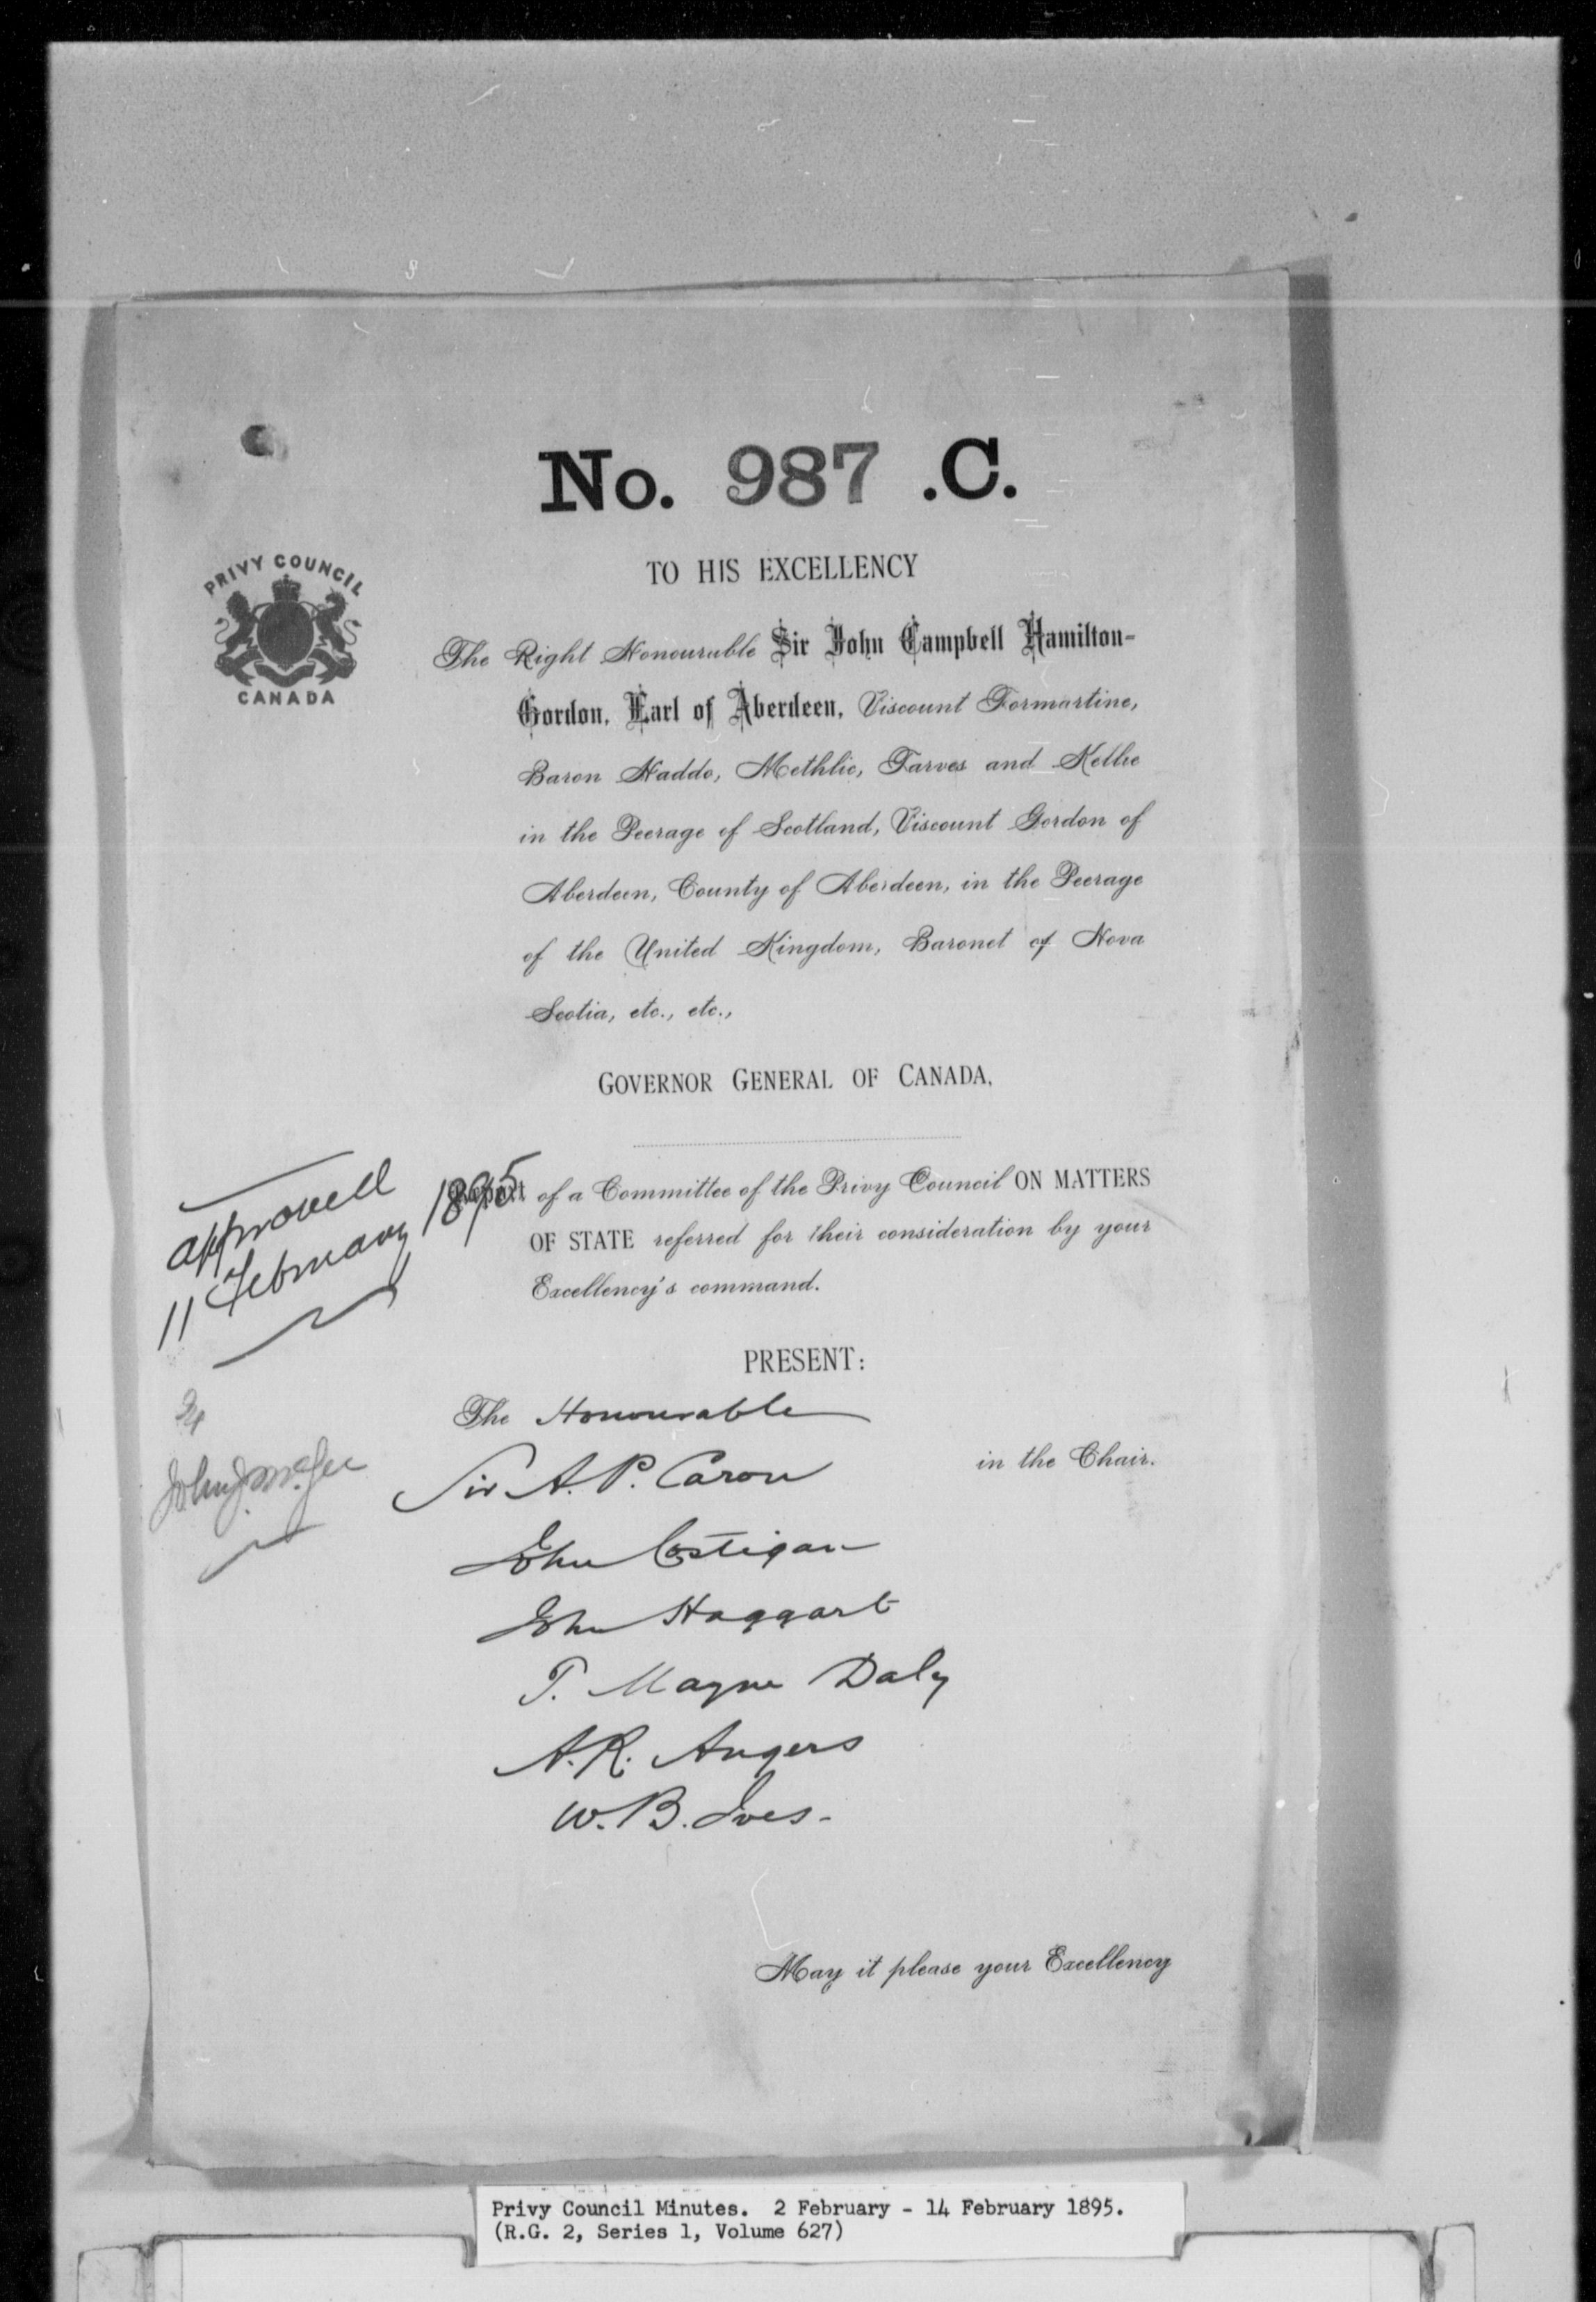 No. 987 .C.
PRIVY COUNCIL
CANADA
TO HIS EXCELLENCY
The Right Honourable Sir John Campbell Hamilton-
Gordon, Earl of Aberdeen, Viscount Formartine,
Baron Haddo, Methlic, Tarves and Kellie
in the Peerage of Scotland, Viscount Gordon of
Aberdeen, County of Aberdeen, in the Peerage
of the United Kingdom, Baronet of Nova
Scotia, etc., etc.,
GOVERNOR GENERAL OF CANADA,
approved
11 February 1895
Report of a Committee of the Privy Council ON MATTERS
OF STATE referred for their consideration by your
Excellency's command.
PRESENT:
The Honourable
Sir A. P. Caron in the Chair.
John J. McGee
John Costigan
John Haggart
T. Mayne Daly
A. R. Angers
W. B. Ives.
May it please your Excellency
Privy Council Minutes. 2 February - 14 February 1895.
(R.G. 2, Series 1, Volume 627)